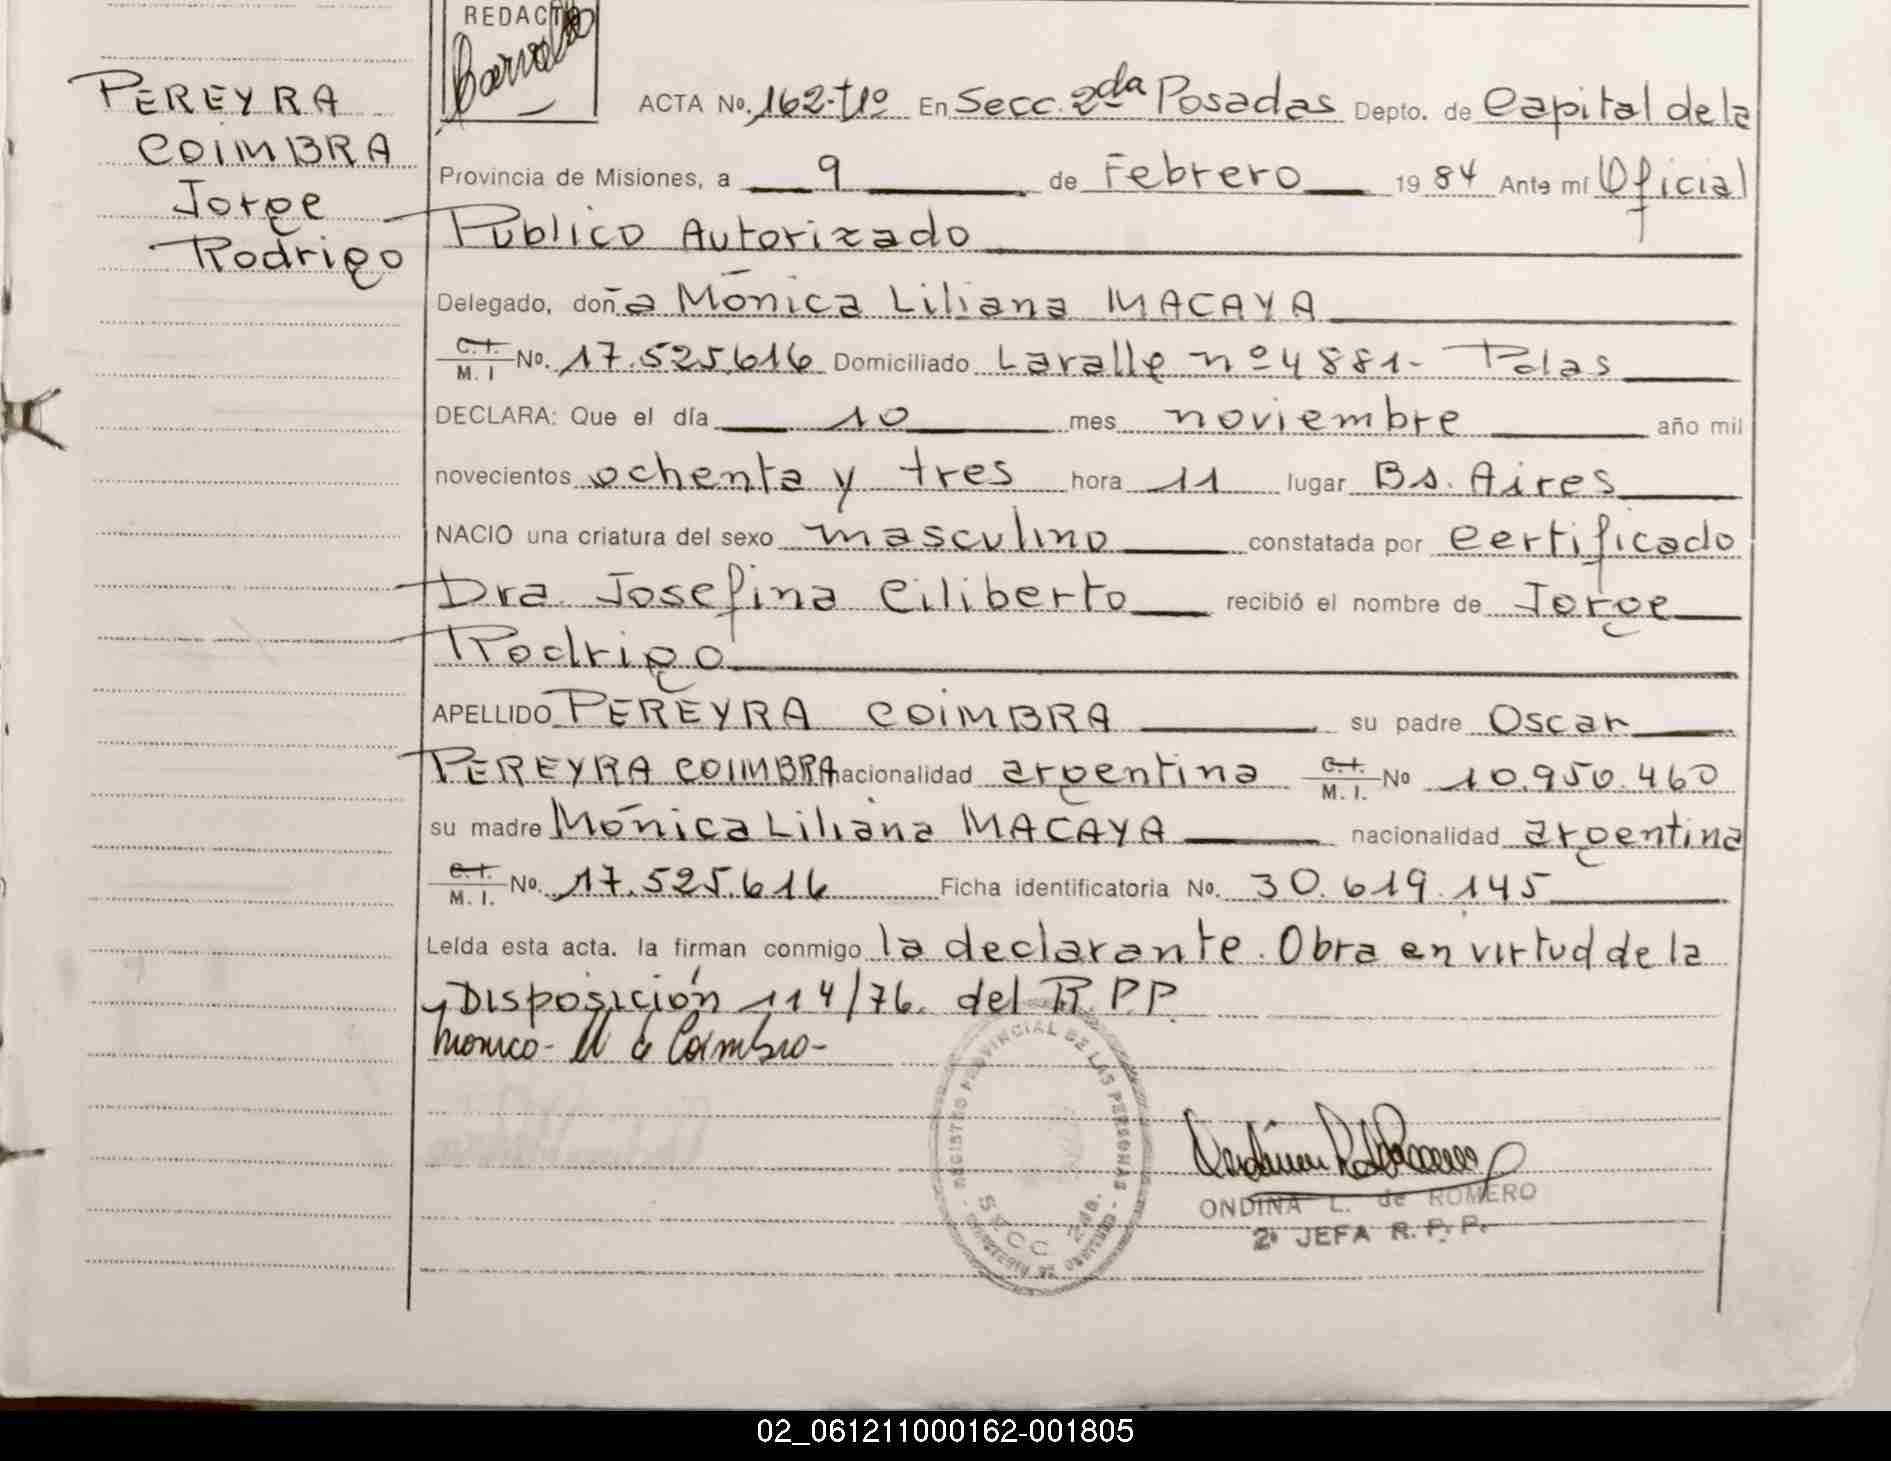 REDACTO
PEREYRA
COIMBRA
Jorge
Rodrigo
ACTA No. 162-tº1º En Secc. 2da Posadas Depto. de Capital de la
Provincia de Misiones, a 9 de Febrero 19 84 Ante mí Oficial
Público Autorizado
Delegado, doña Mónica Liliana MACAYA
C.I. M. I No. 17.525.616 Domiciliado Lavalle nº 4881- Pdas
DECLARA: Que el día 10 mes noviembre año mil
novecientos ochenta y tres hora 11 lugar Bs. Aires
NACIO una criatura del sexo masculino constatada por certificado
Dra. Josefina Ciliberto recibió el nombre de Jorge
Rodrigo
APELLIDO PEREYRA COIMBRA su padre Oscar
PEREYRA COIMBRA nacionalidad argentina C.I. M. I. No 10.950.460
su madre Mónica Liliana MACAYA nacionalidad argentina
C.I. M. I. No. 17.525.616 Ficha identificatoria No. 30.619.145
Leída esta acta. la firman conmigo la declarante. Obra en virtud de la
Disposición 114/76. del R.P.P.
Monica M de Coimbra-
REGISTRO PROVINCIAL DE LAS PERSONAS
SECC 2da.
ONDINA L. de ROMERO
2ª JEFA R. P. P.
02_061211000162-001805